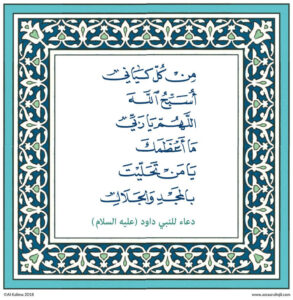 مِنْ كُلِّ كِيَانِي
أُسَبِّحُ اللهَ
اللَّهُمَّ يَا رَبِّي
مَا أَعْظَمَكَ
يَا مَنْ تَجَلَّيْتَ
بِالمَجْدِ وَالجَلَالِ
دعاء للنبي داود (عليه السلام)
©Al-Kalima 2018